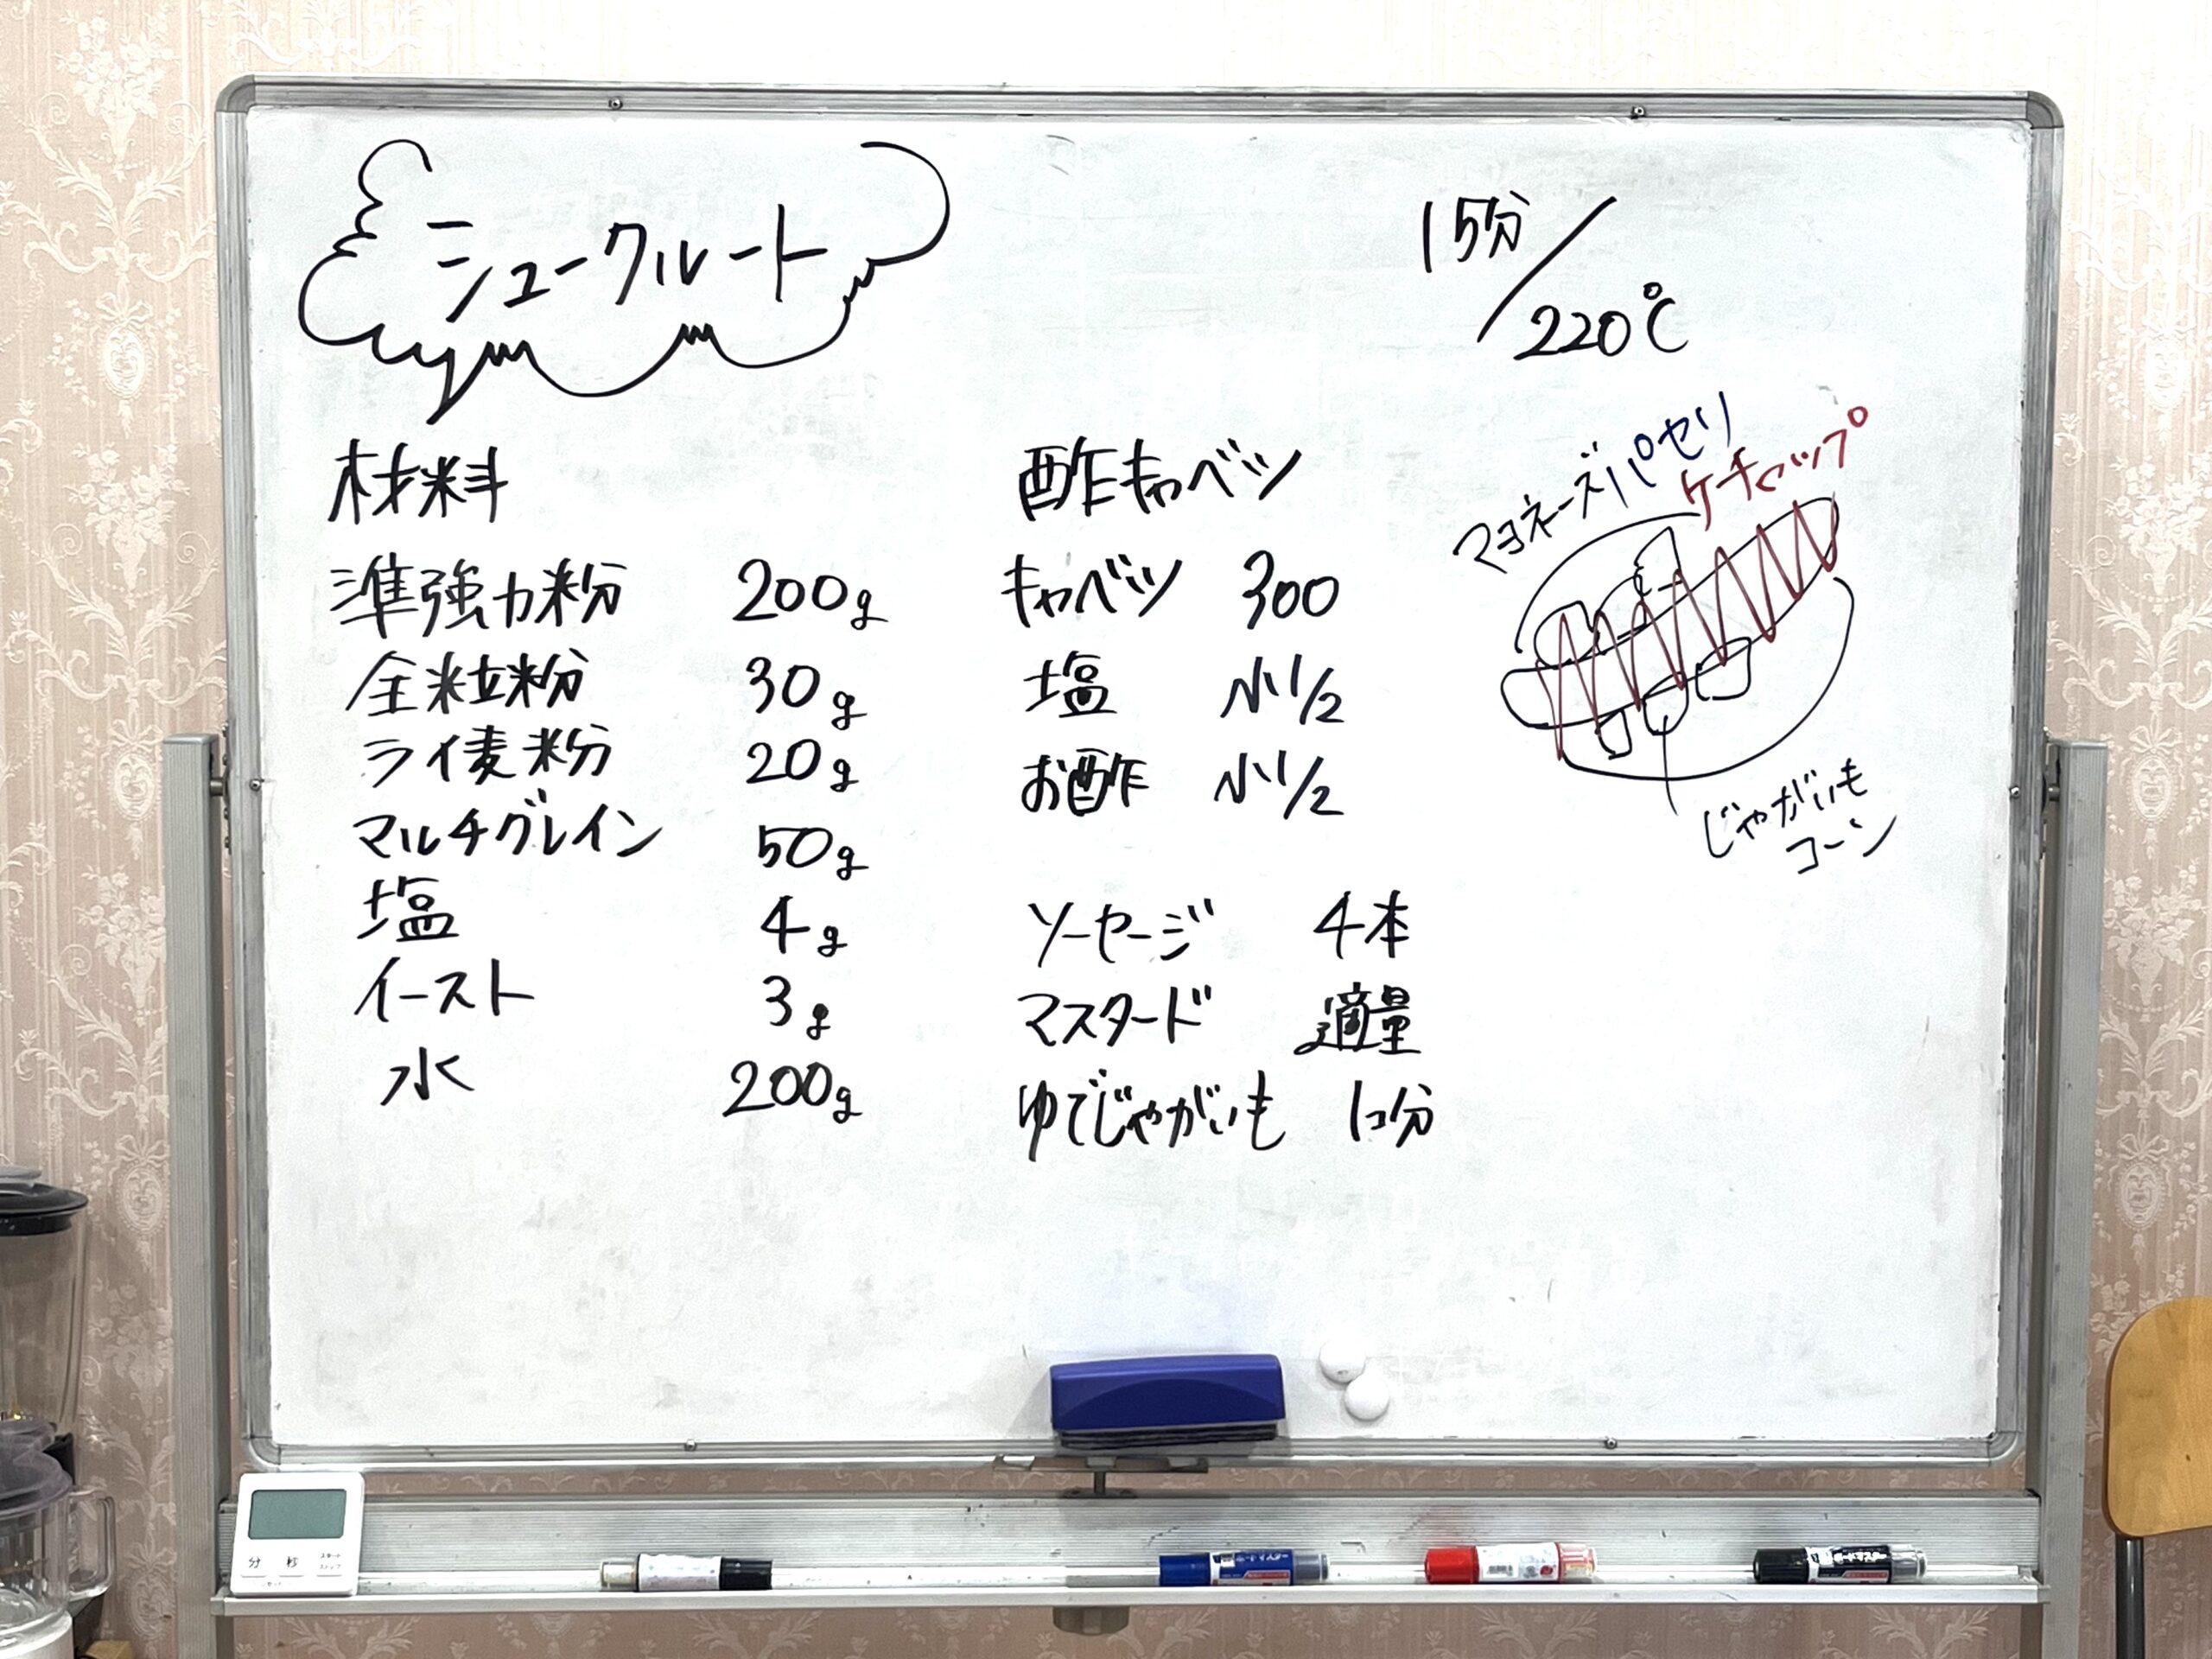 シュークルート
15分/220℃
材料
準強力粉 200g
全粒粉 30g
ライ麦粉 20g
マルチグレイン 50g
塩 4g
イースト 3g
水 200g
酢キャベツ
キャベツ 300
塩 小1/2
お酢 小1/2
ソーセージ 4本
マスタード 適量
ゆでじゃがいも 1コ分
マヨネーズパセリ
ケチャップ
じゃがいも
コーン
分 秒